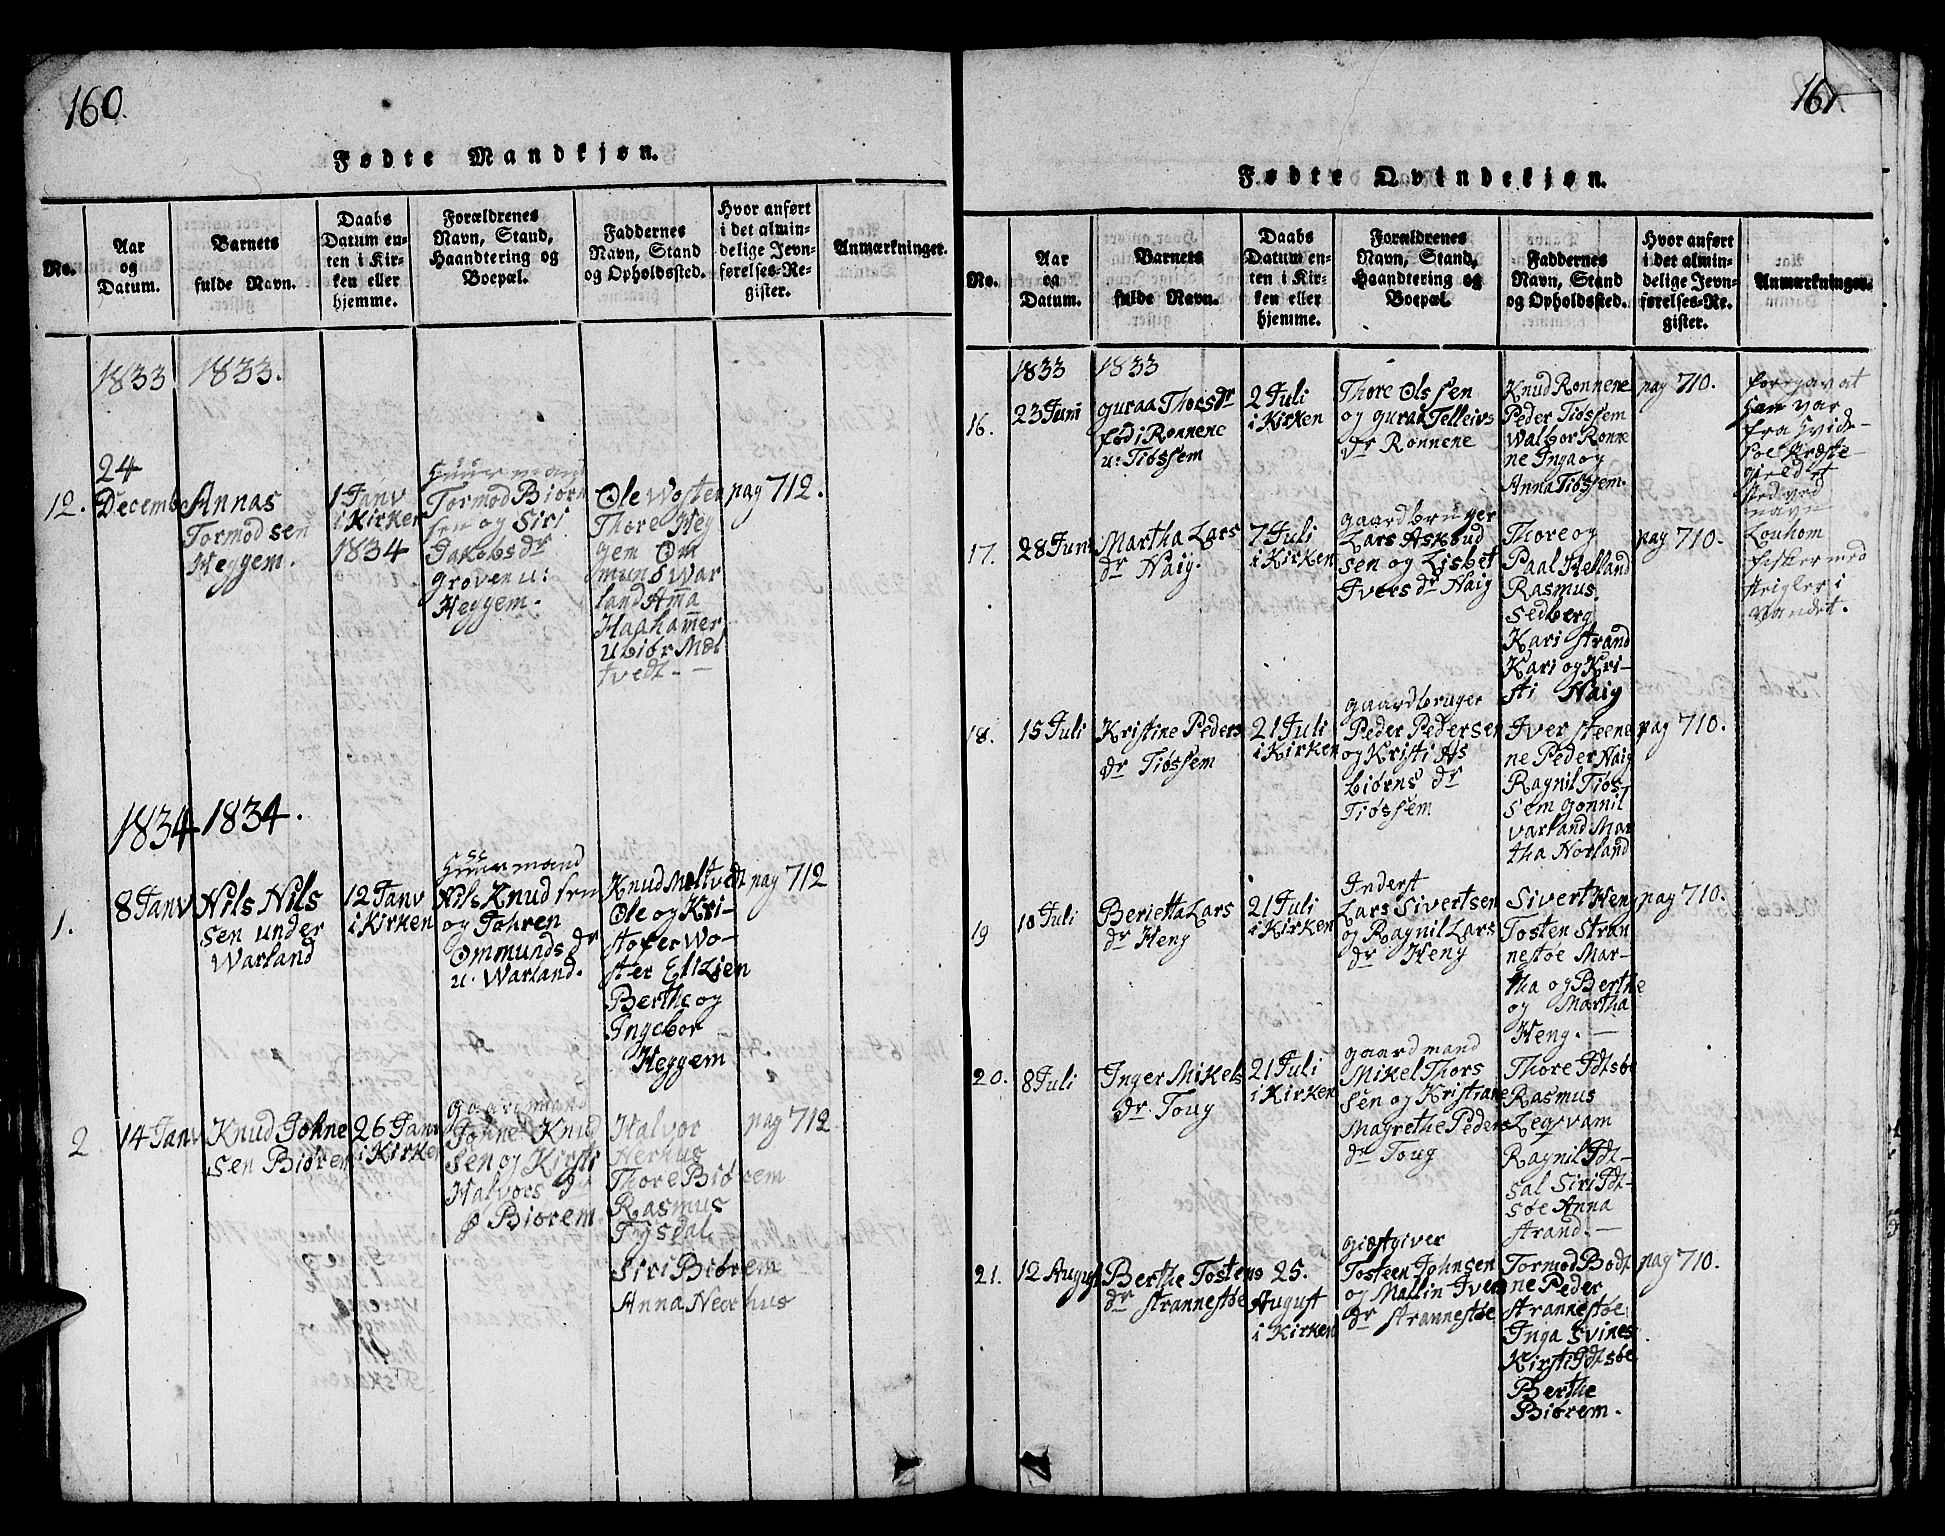 160.
Fødte Mandkjøn.
No.
Aar
og
Datum.
Barnets
fulde Navn.
Daabs
Datum en-
ten i Kir-
ken eller
hjemme.
Forældrenes
Navn, Stand,
Haandtering og
Boepæl.
Faddernes
Navn, Stand
og Opholdssted.
Hvor anført
i det almin-
delige Jevn-
førelses-Re-
gister.
Anmærkninger.
1833
1833.
12.
24
Decembe
Annas
Tormodsen
Heggem.
1 Janv
i Kirken
1834
Huusmand
Tormod Biørn
sen og Siri
Jakobsdr
Groven u:
Heggem.
Ole Wosten
Thore Heg
gem Om
mund War
land Anna
Haahamer
Ubiør Mæl
tvedt. —
pag 712.
1834
1834.
1.
8 Janv
Nils Nils
sen under
Warland
12 Janv
i Kirken
Huusmand
Nils Knudsen
og Johren
Ommundsdr
u. Warland.
Knud Meltvedt
Ole og Kri-
stofer Wo-
ster Elizjen
Berthe og
Ingebor
Heggem
pag 712
2
14 Janv
Knud Johne
sen Biørem
26 Janv
i Kirken
Gaardmand
Johne Knud
sen og Kirsti
Halvors dr
Biørem
Halvor
Nerhus
Thore Biørem
Rasmus
Tysdal
Siri Biørem
Anna Neerhus
pag 712
161
Fødte Qvindekjøn.
No.
Aar
og
Datum.
Barnets
fulde Navn.
Daabs
Datum en-
ten i Kir-
ken eller
hjemme.
Forældrenes
Navn, Stand,
Haandtering og
Boepæl.
Faddernes
Navn, Stand
og Opholdssted.
Hvor anført
i det almin-
delige Jevn-
førelses-Re-
gister.
Anmærkninger.
1833
1833
16.
23 Juni
Guraa Thorsdr
fød i Rønnene
u: Tiøssem
2 Juli
i Kirken
Thore Olssen
og Guraa Telleivs
dr Rønnene
Knud Rønnene
Peder Tiøssem
Walbor Rønne
ne Inga og
Anna Tiøssem.
pag 710.
forgav at
han var
fra Hvide-
søe Præste-
gield et
sted ved
navn
Louhom
17.
28 Juni
Martha Lars
dr Haig.
7 Juli
i Kirken
Gaardbruger
Lars Asbiud
sen og Lisbet
Ivers dr Haig
Thore og
Paal Helland
Rasmus
Sedberg
Kari Strand
Kari og Kri-
sti Haig
pag 710.
18.
15 Juli
Kristine Peders
dr Tiøssem
21 Juli
i Kirken
Gaardbruger
Peder Pedersen
og Kristi As
biørns dr
Tiøssem
Iver Steene
ne Peder Haig
Ragnil Tiøs-
sem Gonnil
Varland Mar
tha Norland
pag 710.
19
10 Juli
Berietta Lars
dr Heng
21 Juli
i Kirken
Inderst
Lars Sivertsen
og Ragnil Lars
dr Heng
Sivert Heng
Tosten Stran
nestøe Mar-
tha og Berthe
og Martha
Heng. —
pag 710.
20.
8 Juli
Inger Mikels
dr. Toug
21 Juli
i Kirken
Gaardmand
Mikel Thors
sen og Kristiane
Magrethe Peders
dr Toug
Thore Idtsøe
Rasmus
Leqvam
Ragnil Idt-
sal Siri Idt-
søe Anna
Strand. —
21.
12 August
Berthe Tostens
dr Strannestøe
25.
August
i Kirken
Giæstgiver
Tosteen Johnsen
og Mallin Ivers
dr Strannestøe
Tormod Bodt
ne Peder
Strannestøe
Inga Svines
Kirsti Idtsøe
Berthe
Biørem.
pag 710.